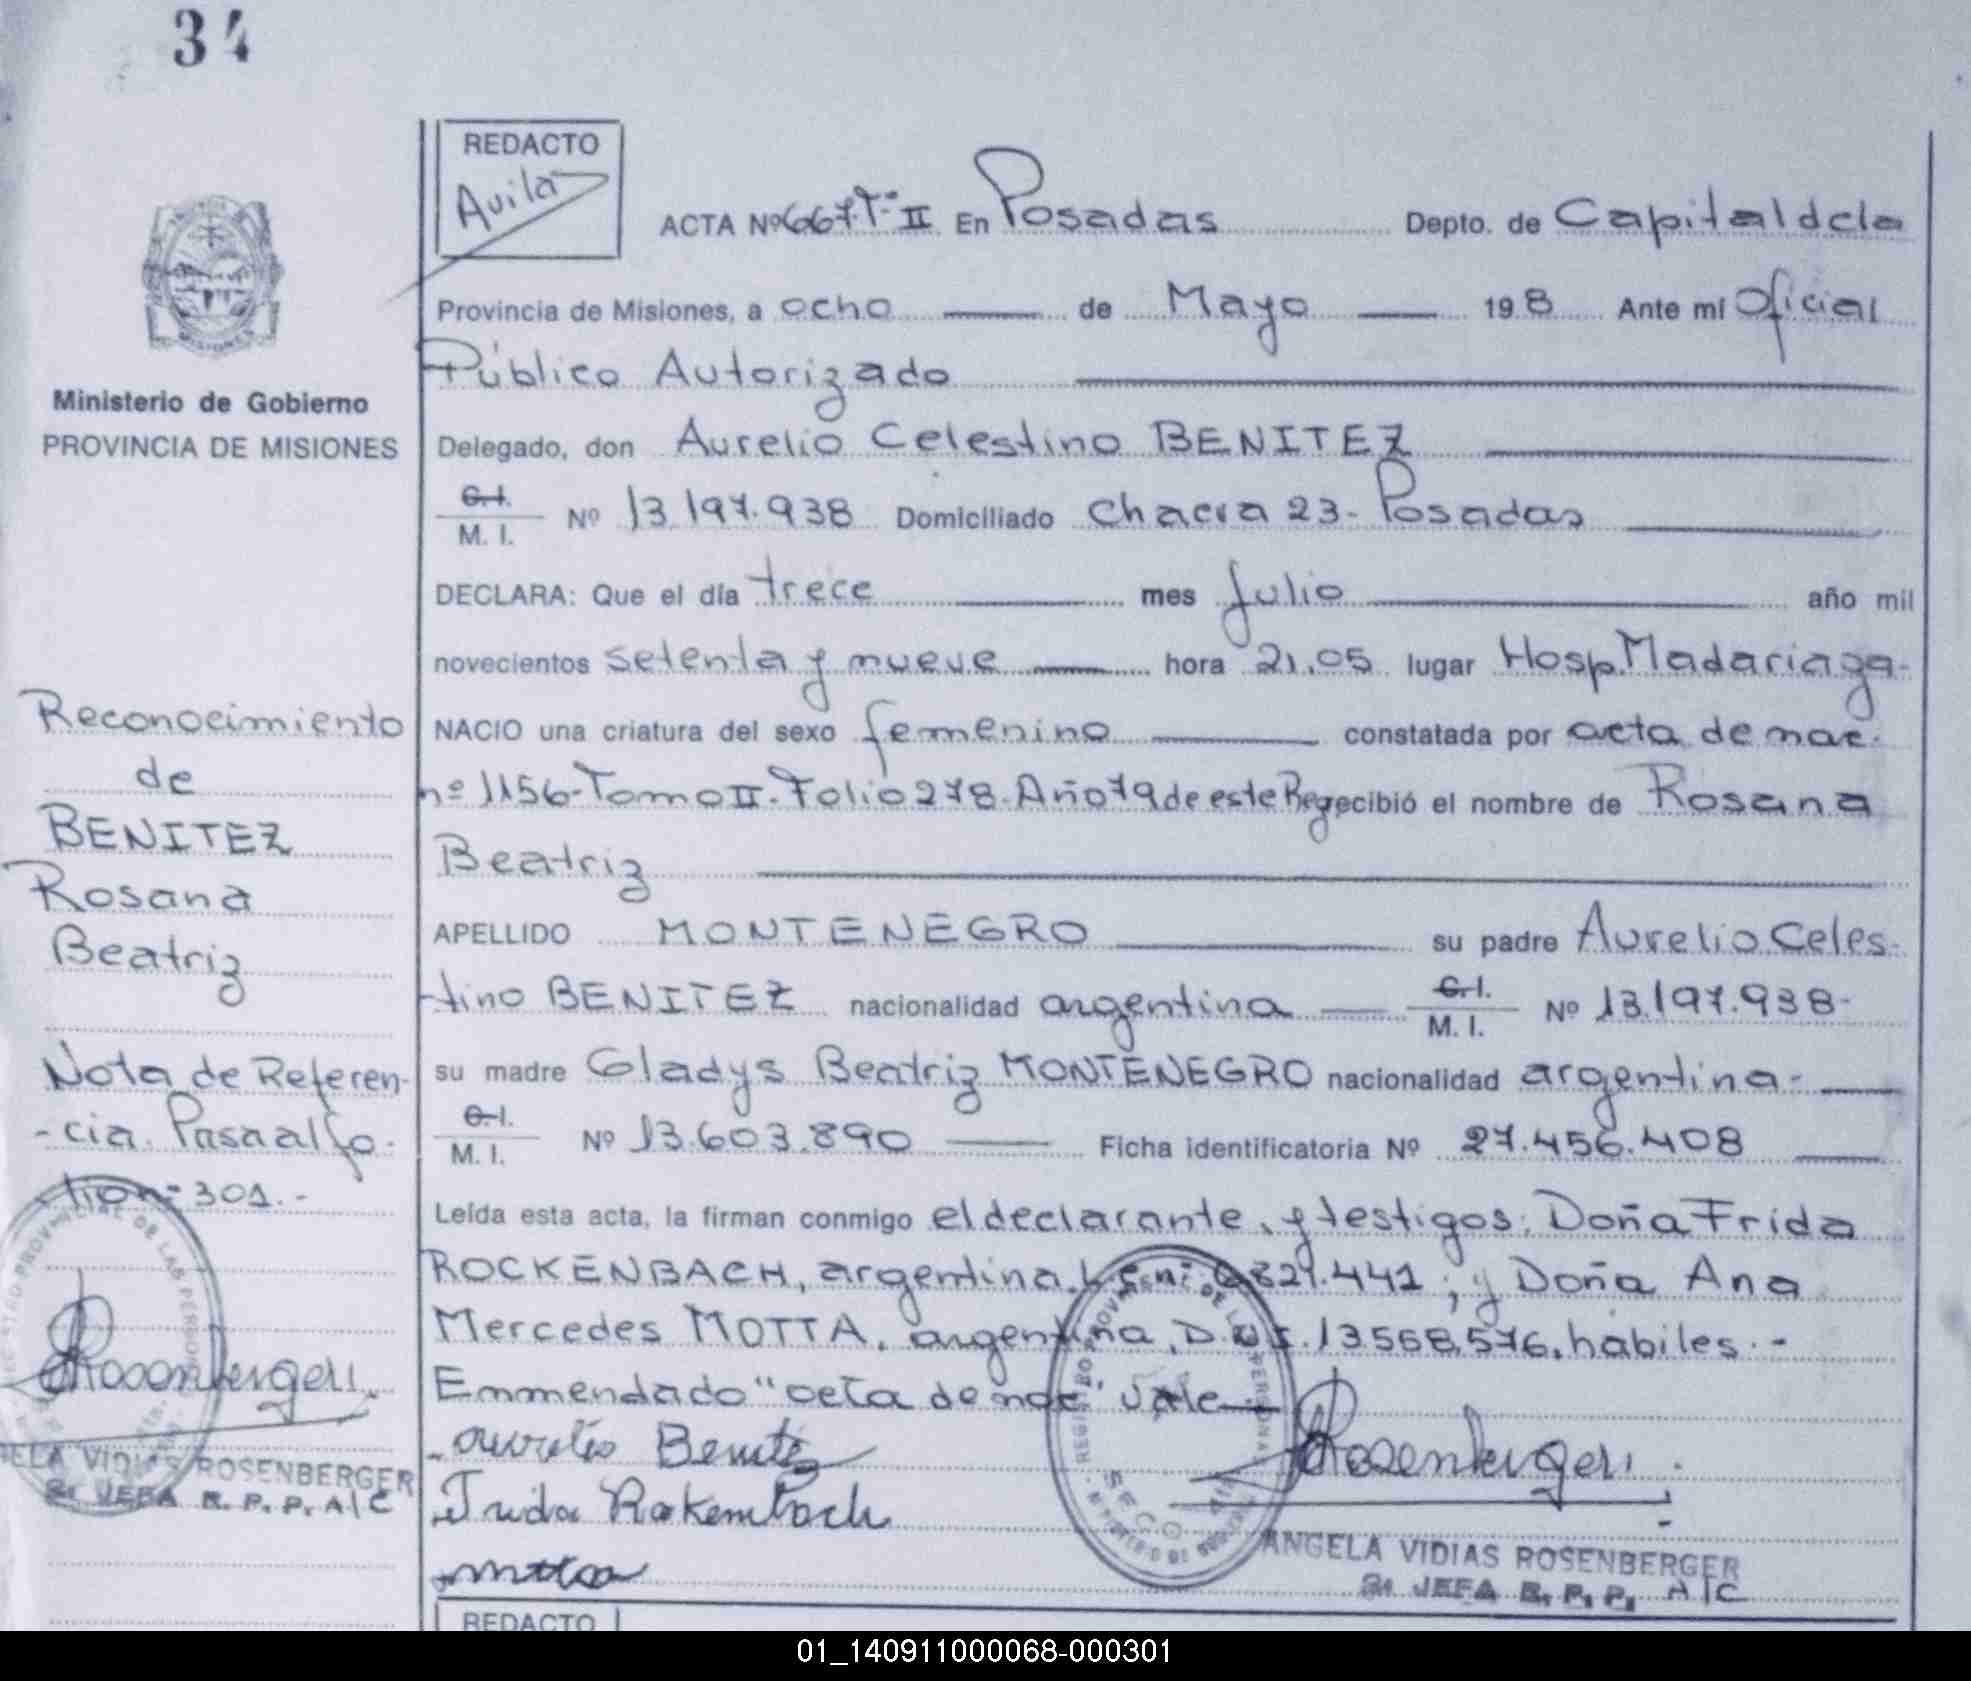 34
REDACTO
Avila
ACTA Nº 667 Tº II En Posadas Depto. de Capital de la
Provincia de Misiones, a ocho de Mayo 198 Ante mí Oficial
Público Autorizado
Delegado, don Aurelio Celestino BENITEZ
C.I.
M. I. Nº 13.197.938 Domiciliado Chacra 23- Posadas
DECLARA: Que el día trece mes Julio año mil
novecientos setenta y nueve hora 21,05 lugar Hosp. Madariaga-
NACIO una criatura del sexo femenino constatada por acta de nac.
nº 1156-Tomo II-Folio 278-Año 79 de este Reg recibió el nombre de Rosana
Beatriz
APELLIDO MONTENEGRO su padre Aurelio Celes-
tino BENITEZ nacionalidad argentina C.I.
M. I. Nº 13.197.938-
su madre Gladys Beatriz MONTENEGRO nacionalidad argentina-
C.I.
M. I. Nº 13.603.890 Ficha identificatoria Nº 27.456.408
Leída esta acta, la firman conmigo el declarante, y testigos; Doña Frida
ROCKENBACH, argentina, 441; y Doña Ana
Mercedes MOTTA, argentina, D.N.I. 13568,576, habiles.-
Enmendado "acta de nac" vale
Aurelio Benitez
Frida Rokembach
Motta
Rosenberger
ANGELA VIDIAS ROSENBERGER
JEFA R. P. P. A/C
REGISTRO PROVINCIAL DE LAS PERSONAS
Ministerio de Gobierno
PROVINCIA DE MISIONES
Reconocimiento
de
BENITEZ
Rosana
Beatriz
Nota de Referen-
-cia. Pasa al fo-
lio nº 301.-
PROVINCIAL DE LAS PERSONAS
Rosenberger
ELA VIDIAS ROSENBERGER
JEFA R. P. P. A/C
REDACTO
01_140911000068-000301